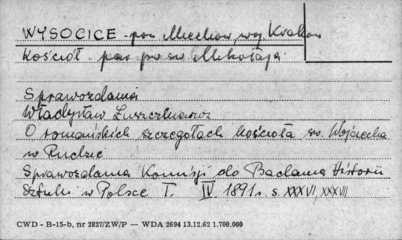 WYSOCICE - pow Miechów, woj Kraków
Kościół - par. p.w. św. Mikołaja
Sprawozdania
Władysław Łuszczkiewicz
O romańskich szczegółach kościoła św. Wojciecha
w Rudzie
Sprawozdania Komisji do Badania Historii
Sztuki w Polsce T. IV 1891r. s. XXXVI, XXXVII
CWD - B-15-b, nr 2827/ZW/P — WDA 2694 13.12.62 1.700.000